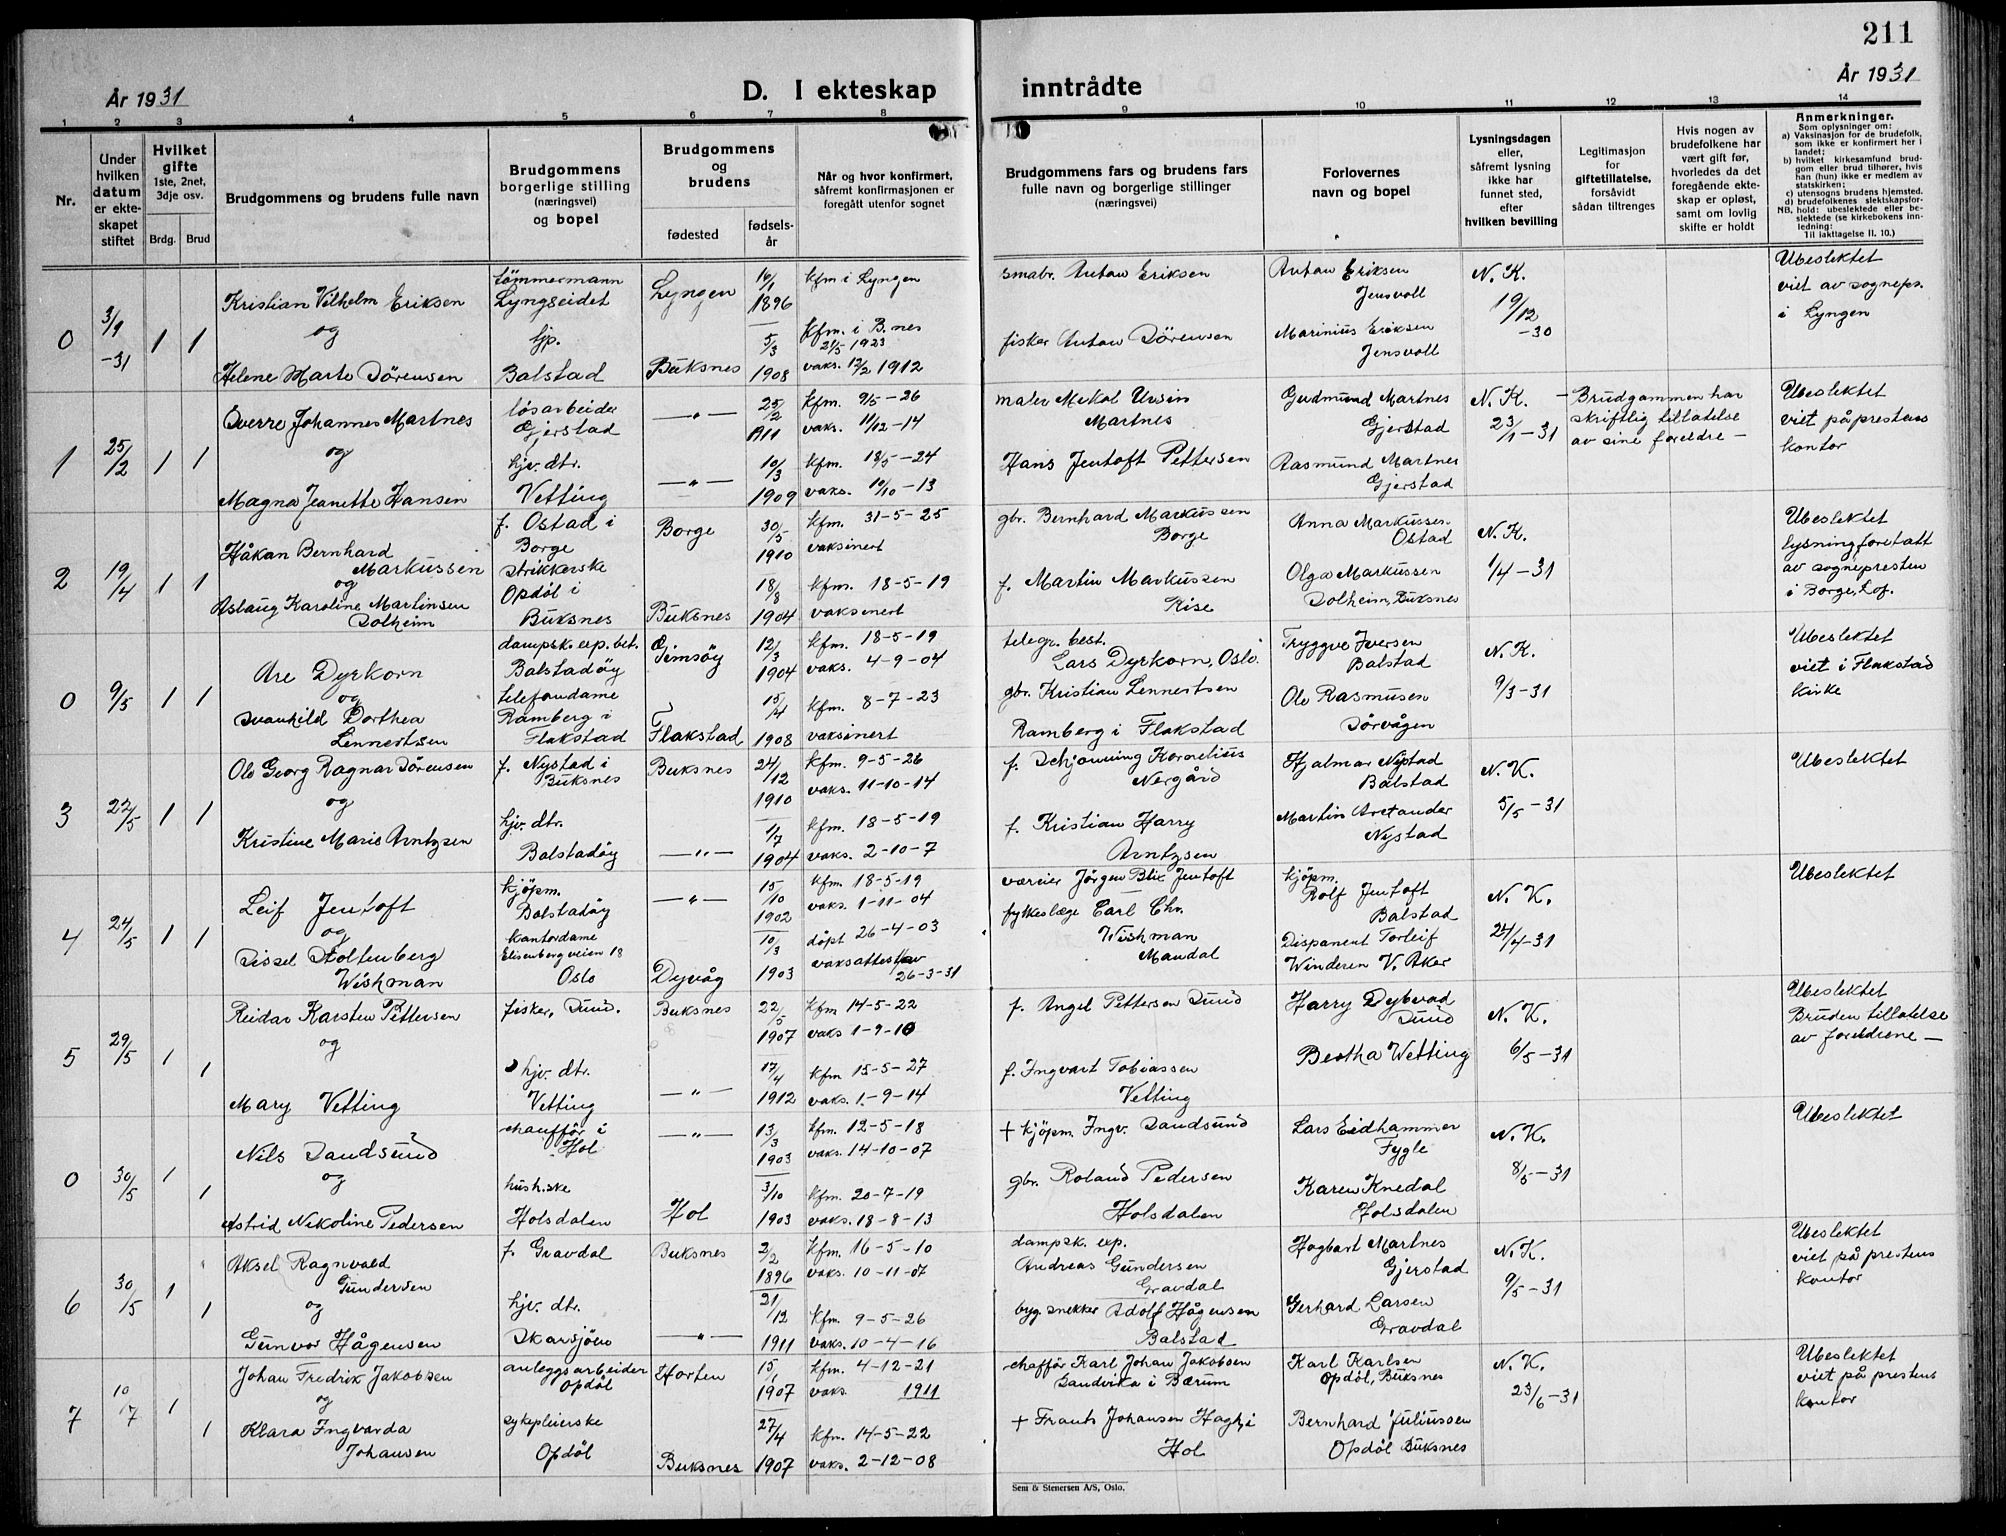 211
År 1931
D. I ekteskap inntrådte
År 1931
1 2 3 4 5 6 7 8 9 10 11 12 13 14
Nr.
Under hvilken datum er ekteskapet stiftet
Hvilket gifte 1ste, 2net, 3dje osv.
Brdg. Brud
Brudgommens og brudens fulle navn
Brudgommens borgerlige stilling (næringsvei) og bopel
Brudgommens og brudens
fødested
fødselsår
Når og hvor konfirmert, såfremt konfirmasjonen er foregått utenfor sognet
Brudgommens fars og brudens fars fulle navn og borgerlige stillinger (næringsvei)
Forlovernes navn og bopel
Lysningsdagen eller, såfremt lysning ikke har funnet sted, efter hvilken bevilling
Legitimasjon for giftetillatelse, forsåvidt sådan tiltrenges
Hvis nogen av brudefolkene har vært gift før, hvorledes da det foregående ekteskap er opløst, samt om lovlig skifte er holdt
Anmerkninger.
Som oplysninger om:
a) Vaksinasjon for de brudefolk, som ikke er konfirmert her i landet;
b) hvilket kirkesamfund brudgom eller brud tilhører, hvis han (hun) ikke er medlem av statskirken;
c) utensogns brudens hjemsted.
d) brudefolkenes slektskapsforhold: ubeslektede eller beslektede (se kirkebokens innledning:
NB.
Til iakttagelse II. 10.)
0 3/9 -31 1 1
Kristian Vilhelm Eriksen
og
Helene Marte Sörensen
tömmermann
Lyngseidet
hjp.
Balstad
Lyngen
Buksnes
16/1 1896
5/3 1908
kfm i Lyngen
kfm. i B.nes
21/5 1923
vaks. 12/2 1912
smabr. Anton Eriksen
fisker Anton Sörensen
Anton Eriksen
Jensvoll
Marinius Eriksen
Jensvoll
N. K.
19/12 -30
Ubeslektet
viet av sognepr.
i Lyngen
1 25/2 1 1
Sverre Johannes Martnes
og
Magna Jeanette Hansen
lösarbeider
Gjerstad
hjv. dtr.
Vetting
— " —
— " —
25/2 1911
10/3 1909
kfm. 9/5 - 26
vaks. 11/12 - 14
kfm. 18/5 - 24
vaks. 10/10 - 13
maler Mekal Ursin
Martnes
Hans Jentoft Pettersen
Gudmund Martnes
Gjerstad
Aasmund Martnes
Gjerstad
N. K.
23/1 - 31
Brudgammen har
skriftlig tillatelse
av sine foreldre —
Ubeslektet
viet på prestens
kontor
2 19/4 1 1
Håkan Bernhard
Markussen
og
Aslaug Karoline Martinsen
Solheim
f. Ostad i
Borge
strikkerske
Opdöl i
Buksnes
Borge
Buksnes
30/5 1910
18/8 1904
kfm. 31-5-25
vaksinert
kfm. 18-5-19
vaksinert
gbr. Bernhard Markussen
Borge
f. Martin Markussen
Rise
Anna Markussen
Ostad
Olga Markussen
Solheim, Buksnes
N. K.
1/4 - 31
Ubeslektet
lysning foretatt
av sognepresten
i Borge, Lof.
0 9/5 1 1
Are Dyrkorn
og
Svanhild Dorthea
Lennertsen
dampsk. exp. bet.
Balstadöy
telefondame
Ramberg i
Flakstad
Gimsöy
Flakstad
12/3 1904
15/4 1908
kfm. 18-5-19
vaks. 4-9-04
kfm. 8-7-23
vaksinert
telegr. best.
Lars Dyrkorn, Oslo.
gbr. Kristian Lennertsen
Ramberg i Flakstad
Tryggve Iversen
Balstad
Ole Rasmusen
Sörvågen
N. K.
9/3 - 31
Ubeslektet
viet i Flakstad
kirke
3 22/5 1 1
Ole Georg Ragnar Sörensen
og
Kristine Marie Arntzen
f. Nystad i
Buksnes
hjv. dtr.
Balstadöy
Buksnes
— " —
24/12 1910
1/7 1904
kfm. 9-5-26
vaks. 11-10-14
kfm. 18-5-19
vaks. 2-10-7
f. Schjönning Kornelius
Nergård
f. Kristian Harry
Arntzen
Hjalmar Nystad
Balstad
Martin Aretander
Nystad
N. K.
5/5 - 31
Ubeslektet
4 24/5 1 1
Leif Jentoft
og
Sissel Stoltenberg
Wishman
kjöpm.
Balstadöy
kontordame
Elisenberg veien 18
Oslo
— " —
Dyvåg
15/10 1902
10/3 1903
kfm 18-5-19
vaks. 1-11-04
döpt 26-4-03
vaksattest av
26-3-31
væreier Jörgen Blix Jentoft
fylkeslæge Carl Chr.
Wishman
Mandal
kjöpm.
Rolf Jentoft
Balstad
Disponent Torleif
Winderen V. Aker
N. K.
24/4 - 31
Ubeslektet
5 29/5 1 1
Reidar Karsten Pettersen
og
Mary Vetting
fisker, Sund.
hjv. dtr.
Vetting
Buksnes
— " —
22/5 1907
17/4 1912
kfm 14-5-22
vaks 1-9-10
kfm 15-5-27
vaks. 1-9-14
f. Angel Pettersen Sund
f. Ingvart Tobiassen
Vetting
Harry Dybvad
Sund
Beatha Wetting
N. K.
6/5 - 31
Ubeslektet
Bruden tillatelse
av foreldrene —
0 30/5 1 1
Nils Sandsund
og
Astrid Nikoline Pedersen
chaufför i
Hol
hush.ske
Holsdalen
— " —
Hol
13/3 1903
3/10 1903
kfm. 12-5-18
vaks. 14-10-07
kfm. 20-7-19
vaks. 18-8-13
+ kjöpm. Ingv. Sandsund
gbr. Roland Pedersen
Holsdalen
Lars Eidhammer
Fygle
Karen Knedal
Holsdalen
N. K.
8/5 - 31
Ubeslektet
6 30/5 1 1
Aksel Ragnvald
Gundersen
og
Gunvor Hågensen
f. Gravdal
hjv. dtr.
Skarsjöen
Buksnes
— " —
2/2 1896
21/12 1911
kfm. 16-5-10
vaks. 10-11-07
kfm. 9-5-26
vaks. 10-4-16
dampsk. exp.
Andreas Gundersen
Gravdal
byg.snekker Adolf Hågensen
Balstad
Hagbart Martnes
Gjerstad
Gerhard Larsen
Gravdal
N. K.
9/5 - 31
Ubeslektet
viet på prestens
kontor
7 10/7 1 1
Johan Fredrik Jakobsen
og
Klara Ingvarda
Johansen
anleggsarbeider
Opdöl
sykepleierske
Opdöl
Horten
Buksnes
15/1 1907
27/4 1907
kfm. 4-12-21
vaks. 1911
kfm. 14-5-22
vaks. 2-12-08
chafför Karl Johan Jakobsen
Sandvika i Bærum
+ Frants Johansen Hag, i
Hol
Karl Karlsen
Opdöl, Buksnes
Bernhard Juliussen
Opdöl Buksnes
N. K.
23/6 - 31
Ubeslektet
viet på prestens
kontor
Sem & Stenersen A/S, Oslo.